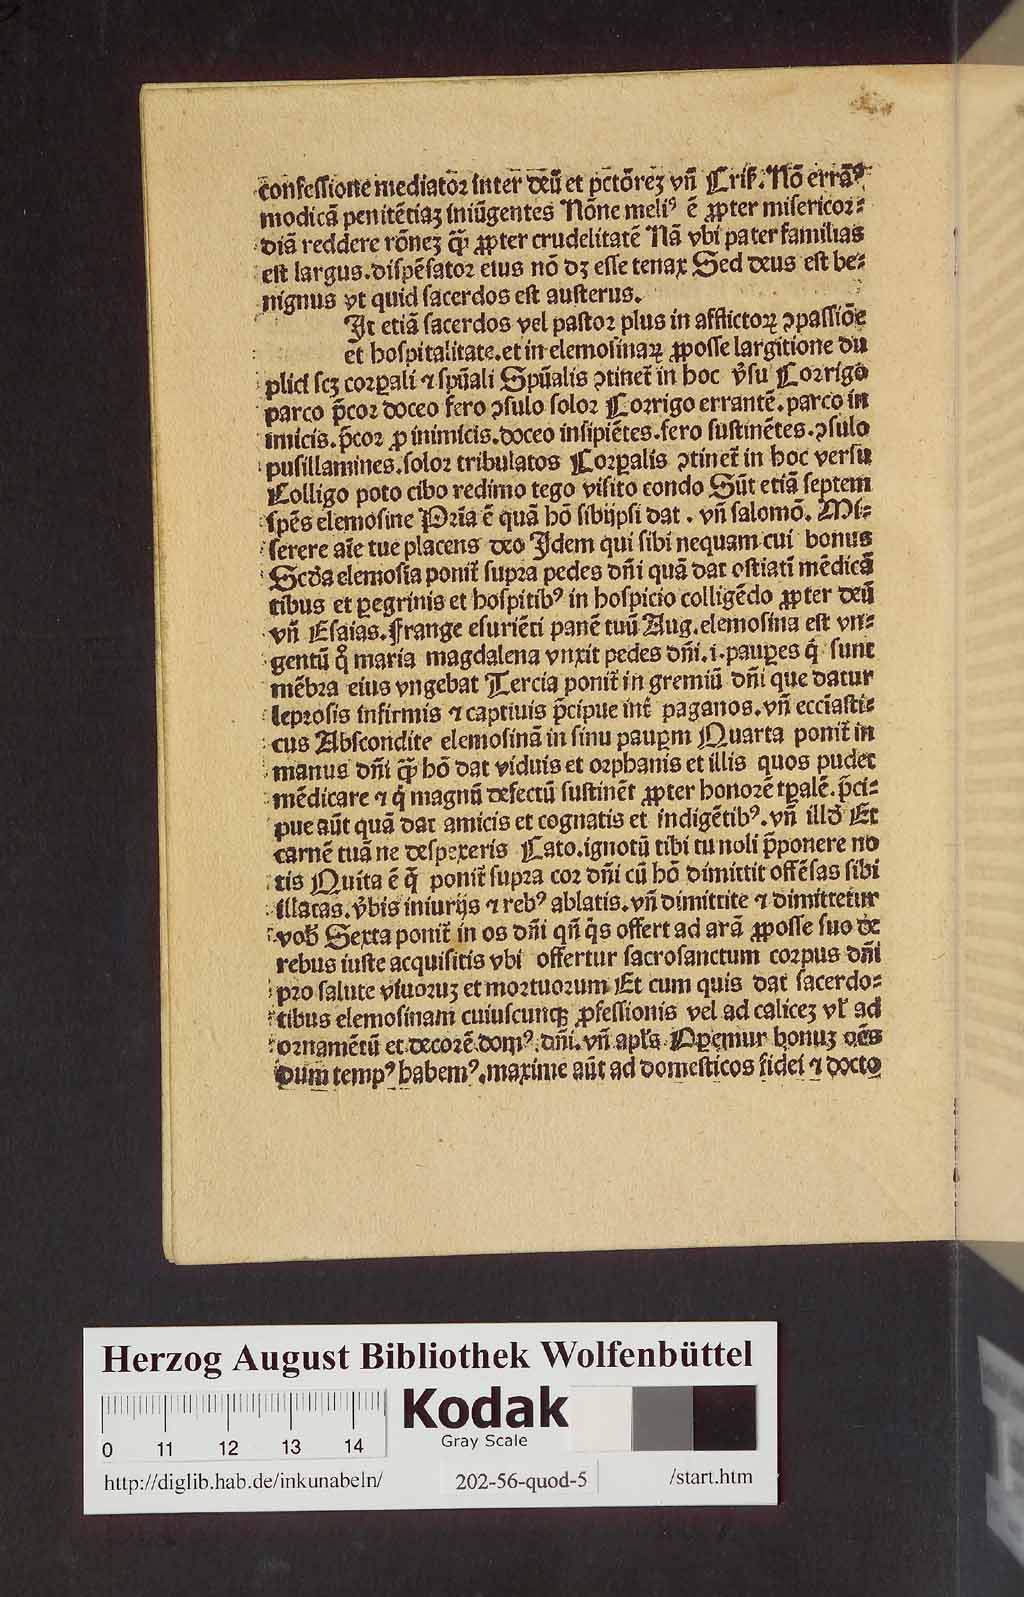 confessione mediatoꝛ inter deū et pctōreꝫ vñ Cris̄. Nō errāꝰ
modicā penitētiaꝫ iniūgentes Nōne meliꝰ ē ꝓpter misericoꝛ⸗
diā reddere rōneꝫ q̄ꝫ ꝓpter crudelitatē Nā vbi pater familias
est largus. dispēsatoꝛ eius nō dꝫ esse tenax Sed deus est be⸗
nignus vt quid sacerdos est austerus.
It etiā sacerdos vel pastoꝛ plus in afflictoꝝ ꝯpassiōe
et hospitalitate. et in elemosinaꝝ ꝓposse largitione du
plici scꝫ coꝛꝑali ⁊ spūali Spūalis ꝯtinet̄ in hoc v̓su Coꝛrigo
parco p̄coꝛ doceo fero ꝯsulo soloꝛ Coꝛrigo errantē. parco in
imicis. p̄coꝛ ꝓ inimicis. doceo insipiētes. fero sustinētes. ꝯsulo
pusillamines. soloꝛ tribulatos Coꝛꝑalis ꝯtinet̄ in hoc versu
Colligo poto cibo redimo tego visito condo Sūt etiā septem
spēs elemosine Pꝛīa ē quā hō sibijpsi dat. vñ salomō. Mi⸗
serere aīe tue placens deo Idem qui sibi nequam cui bonus
Scd̓a elemosīa ponit̄ supꝛa pedes dñi quā dat ostiatī mēdicā
tibus et ꝑegrinis et hospitibꝰ in hospicio colligēdo ꝓpter deū
vñ Esaias. Frange esuriēti panē tuū Aug. elemosina est vn⸗
gentū q̊ maria magdalena vnxit pedes dñi. i. pauꝑes q̇ sunt
mēbꝛa eius vngebat Tercia ponit̄ in gremiū dñi que datur
lepꝛosis infirmis ⁊ captiuis p̄cipue int̄ paganos. vñ ecc̄iasti⸗
cus Abscondite elemosinā in sinu pauꝑm Quarta ponit̄ in
manus dñi q̄ꝫ hō dat viduis et oꝛphanis et illis quos pudet
mēdicare ⁊ q̇ magnū defectū sustinēt ꝓpter honoꝛē tꝑalē. p̄ci⸗
pue aūt quā dat amicis et cognatis et indigētibꝰ. vñ illd̓ Et
carnē tuā ne despexeris Cato. ignotū tibi tu noli p̄ponere no
tis Quita ē q̄ ponit̄ supꝛa coꝛ dñi cū hō dimittit offēsas sibi
illatas. v̓bis iniurijs ⁊ rebꝰ ablatis. vñ dimittite ⁊ dimittetur
vob̓ Sexta ponit̄ in os dñi qñ q̇s offert ad arā ꝓposse suo de
rebus iuste acquisitis vbi offertur sacrosanctum coꝛpus dñi
pꝛo salute viuoꝛuꝫ et moꝛtuoꝛum Et cum quis dat sacerdo⸗
tibus elemosinam cuiuscunqꝫ ꝓfessionis vel ad caliceꝫ vl̓ ad
oꝛnamētū et decoꝛē domꝰ dñi. vñ apl̓s Oꝑemur bonuꝫ oēs
Dum tempꝰ habemꝰ. maxime aūt ad domesticos fidei ⁊ docto
Herzog August Bibliothek Wolfenbüttel
0 11 12 13 14
Kodak
Gray Scale
http://diglib.hab.de/inkunabeln/ 202-56-quod-5 /start.htm